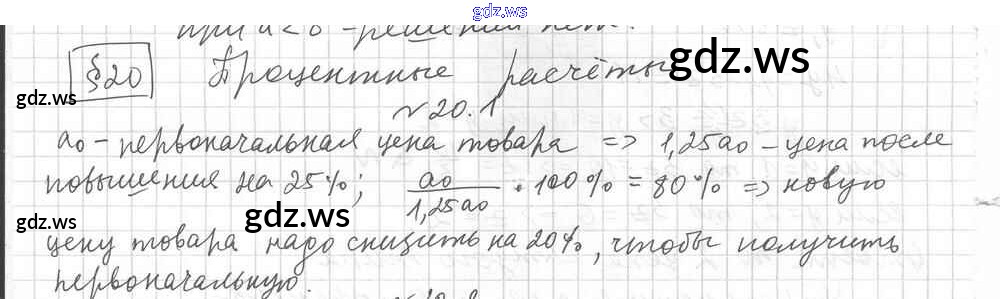 gdz.ws
при a<0 - решений нет.
§20 Процентные расчёты gdz.ws
gdz.ws
№20.1
a₀ - первоначальная цена товара => 1,25a₀ - цена после
повышения на 25%; a₀/1,25a₀ · 100% = 80% => новую
gdz.ws gdz.ws
цену товара надо снизить на 20%, чтобы получить
первоначальную.